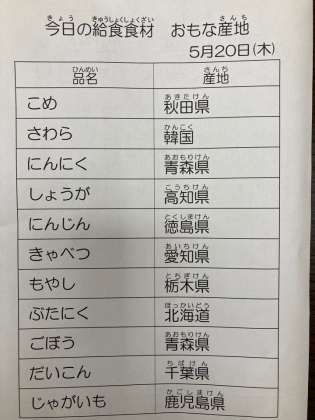 今日の給食食材 おもな産地
5月20日(木)
品名 産地
こめ 秋田県
さわら 韓国
にんにく 青森県
しょうが 高知県
にんじん 徳島県
きゃべつ 愛知県
もやし 栃木県
ぶたにく 北海道
ごぼう 青森県
だいこん 千葉県
じゃがいも 鹿児島県